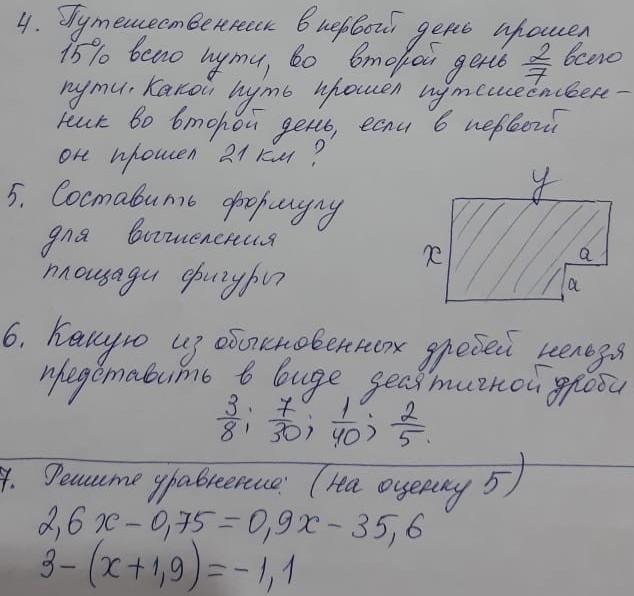 4. Путешественник в первый день прошел
15% всего пути, во второй день 2/7 всего
пути. Какой путь прошел путешествен-
ник во второй день, если в первый
он прошел 21 км?
5. Составить формулу
для вычисления
площади фигуры
y
x
a
a
6. Какую из обыкновенных дробей нельзя
представить в виде десятичной дроби
3/8; 7/30; 1/40; 2/5.
7. Решите уравнение: (на оценку 5)
2,6x - 0,75 = 0,9x - 35,6
3 - (x + 1,9) = -1,1